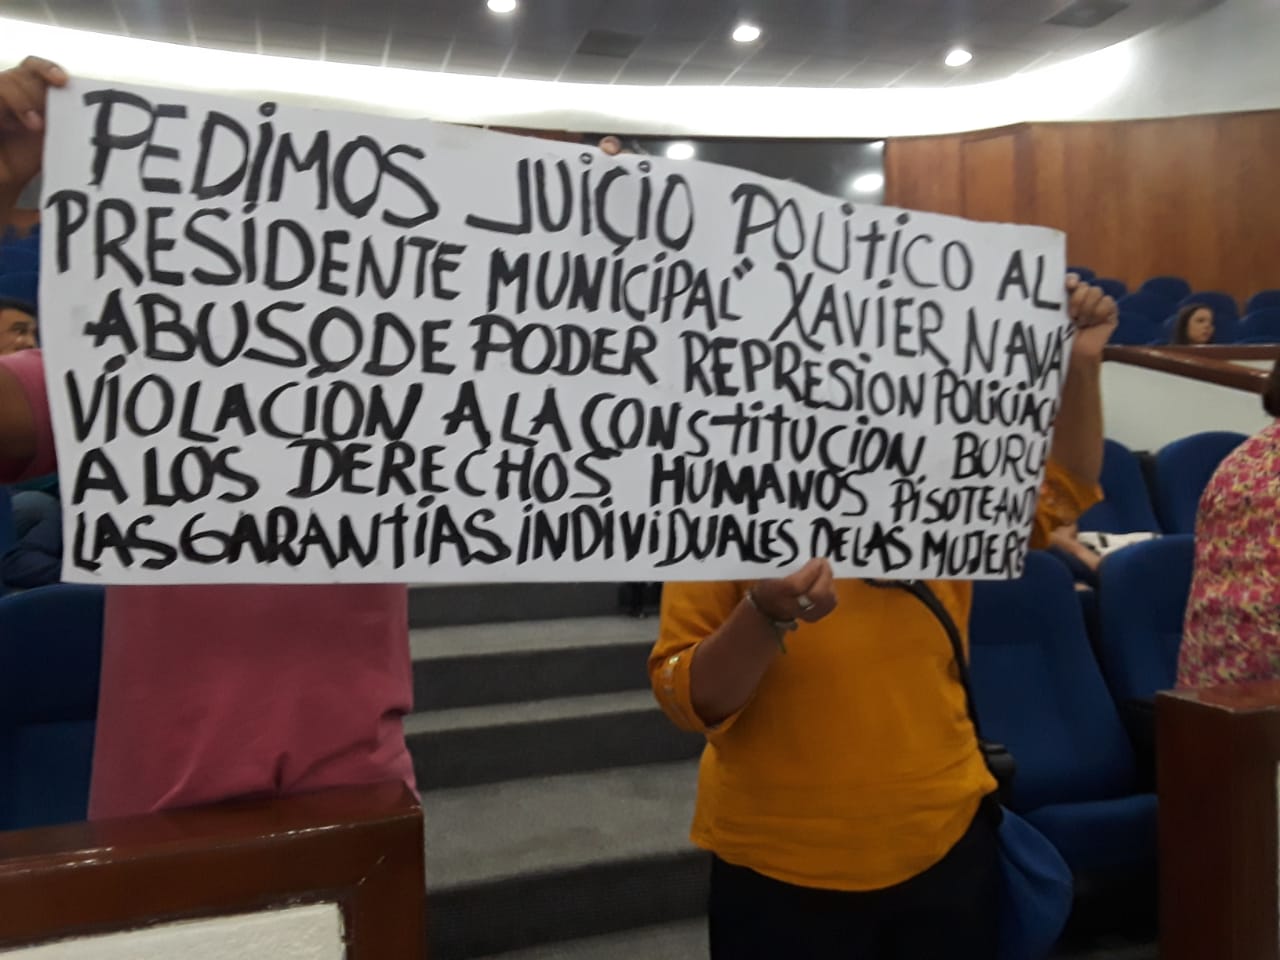 PEDIMOS JUICIO POLITICO AL
PRESIDENTE MUNICIPAL "XAVIER NAVA"
ABUSO DE PODER REPRESION POLICIACA
VIOLACION A LA CONSTITUCION BURLA
A LOS DERECHOS HUMANOS PISOTEANDO
LAS GARANTIAS INDIVIDUALES DE LAS MUJERES